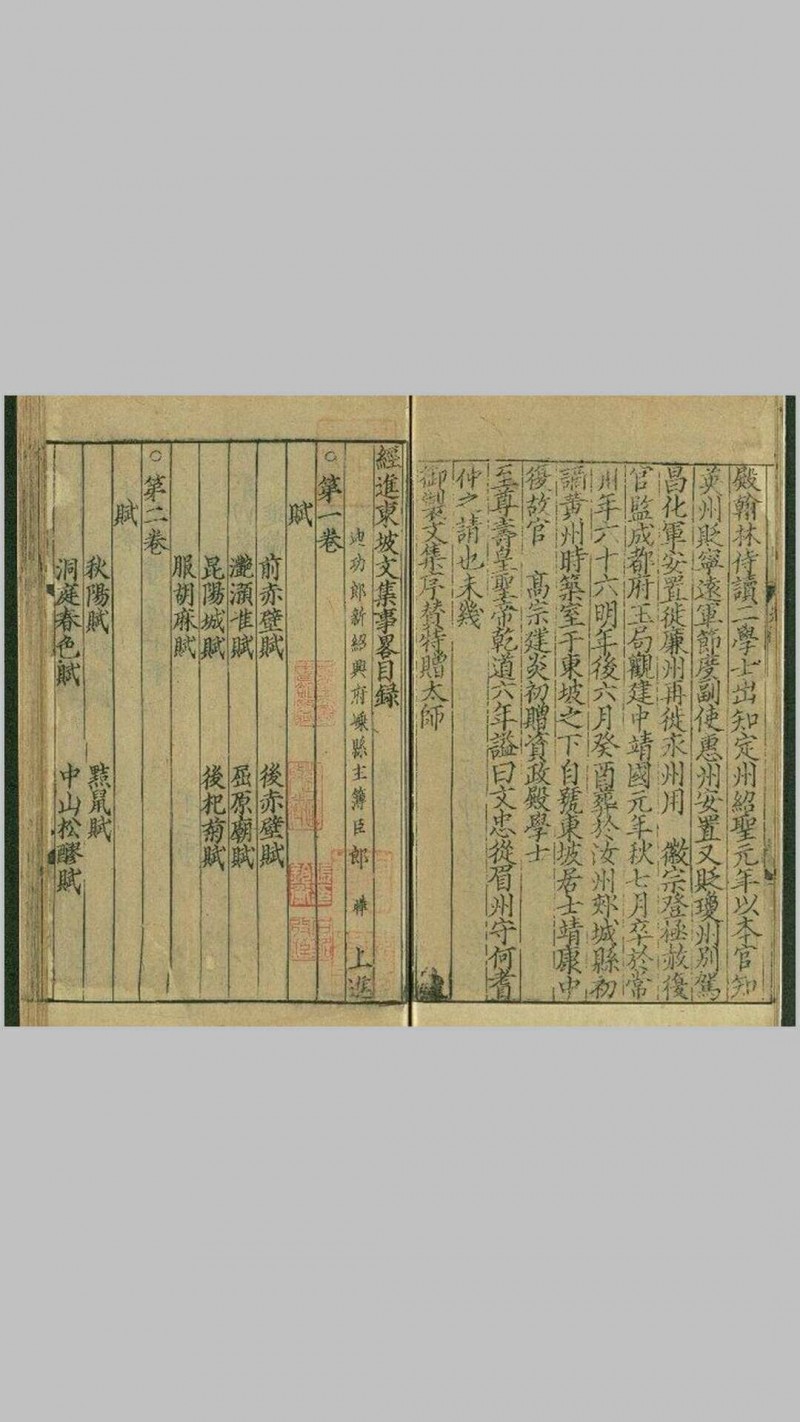 殿翰林侍讀二學士出知定州紹聖元年以本官知
英州貶寧遠軍節度副使惠州安置又貶瓊州別駕
昌化軍安置徙廉州再徙永州用 徽宗登極赦復
官監成都府玉局觀建中靖國元年秋七月卒於常
州年六十六明年後六月癸酉葬於汝州郟城縣初
謫黃州時築室于東坡之下自號東坡居士靖康中
復故官 高宗建炎初贈資政殿學士
至尊壽皇聖帝乾道六年謚曰文忠從眉州守何耆
仲之請也未幾
御製文集序賛特贈太師
經進東坡文集事畧目録
迪功郎新紹興府嵊縣主簿臣郎 曄 上進
○第一卷
賦
前赤壁賦 後赤壁賦
灔澦堆賦 屈原廟賦
昆陽城賦 後杞菊賦
服胡麻賦
○第二卷
賦
秋陽賦 黠鼠賦
洞庭春色賦 中山松醪賦